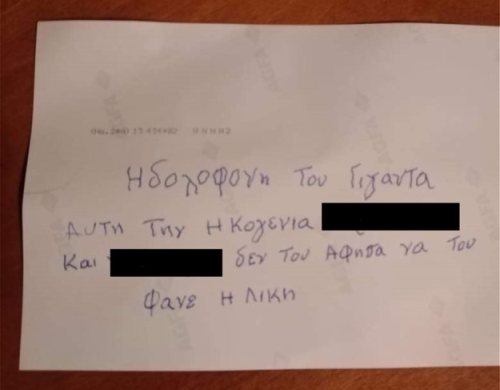 Η δολοφονη του Γιγαντα
Αυτη την Η Κογενια
Και δεν του Αφησα να του
φανε Η Λικη